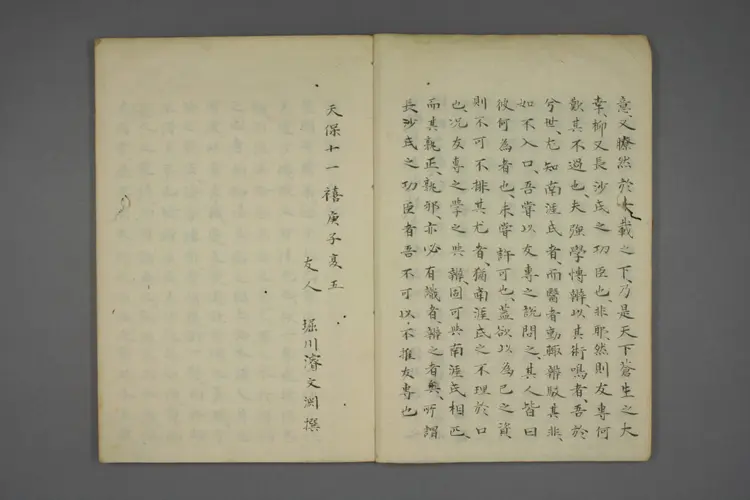 意、又瞭然於千載之下、乃是天下蒼生之大
幸、抑又長沙氏之功臣也、非耶、然則友専何
歎其不遇也、夫強學博辯、以其術鳴者、吾於
今世、尤知南涯氏者、而醫者動輙辨駁其非、
如不入口、吾嘗以友専之説問之、其人皆曰
彼何為者也、未嘗許可也、蓋欲以為己之資、
則不可不排其尤者、猶南涯氏之不理於口
也、况友専之學之與辯、固可與南涯氏相匹、
而其孰正、孰邪、亦必有識者、辨之者與、所謂
長沙氏之功臣者、吾不可以不推友専也
天保十一禧庚子夏五
友人 堀川濬文淵撰